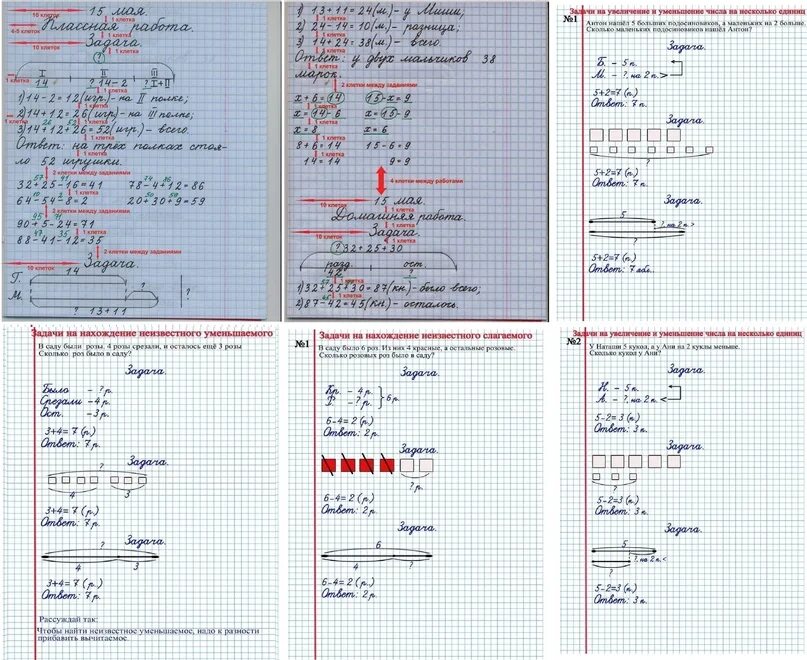 15 мая.
1 клетка
4-5 клеток
Классная работа.
1 клетка
10 клеток
Задача.
1 клетка
?
I II III
14 ? 14-2 ? I+II
1 клетка
1) 14-2=12(игр.)- на II полке;
2) 14+12=26(игр)-на III полке;
1 клетка
26 52
3) 14+12+26=52(игр)- всего.
1 клетка
Ответ: на трёх полках стоя-
ло 52 игрушки.
2 клетки между заданиями
57 74 86
32+25-16=41 78-4+12=86
1 клетка
10 2 50
64-54-8=2 20+30+9=59
2 клетки между заданиями
95
90+5-24=71
1 клетка
47 35
88-41-12=35
2 клетки между заданиями
10 клеток
Задача.
14
Г.
М. ? ?
? 13+11
1) 13+11=24(м.)-у Миши;
1 клетка
2) 24-14=10(м.)- разница;
1 клетка
3) 14+24=38(м.)- всего.
1 клетка
Ответ: у двух мальчиков 38
марок.
2 клетки между заданиями
x+6=14 15-x=9
1 клетка
x=14-6 x=15-9
1 клетка
x=8 x=6
1 клетка
8+6=14 15-6=9
1 клетка
14=14 9=9
4 клетки между работами
10 клеток
15 мая.
1 клетка
Домашняя работа.
1 клетка
10 клеток
Задача.
? 32+25+30
разд. ост.
42 ?
1 клетка
57
1) 32+25+30=87(кн)-было всего;
1 клетка
2) 87-42=45(кн.)-осталось.
Задачи на увеличение и уменьшение числа на несколько единиц
№1
Антон нашёл 5 больших подосиновиков, а маленьких на 2 больше.
Сколько маленьких подосиновиков нашёл Антон?
Задача.
Б. - 5 п.
М. - ?, на 2 п. >
5+2=7 (п.)
Ответ: 7 п.
Задача.
?
5+2=7 (п.)
Ответ: 7 п.
Задача.
5
? на 2 п. >
?
5+2=7 (п.)
Ответ: 7 ябл.
Задачи на нахождение неизвестного уменьшаемого
В саду были розы. 4 розы срезали, и осталось ещё 3 розы
Сколько роз было в саду?
Задача.
Было - ? р.
Срезали - 4 р.
Ост. - 3 р.
3+4=7 (р.)
Ответ: 7 р.
Задача.
?
4 3
3+4=7 (р.)
Ответ: 7 р.
Задача.
?
4 3
3+4=7 (р.)
Ответ: 7 р.
Рассуждай так:
Чтобы найти неизвестное уменьшаемое, надо к разности
прибавить вычитаемое.
№1
Задачи на нахождение неизвестного слагаемого
В саду было 6 роз. Из них 4 красные, а остальные розовые.
Сколько розовых роз было в саду?
Задача.
Кр. - 4 р.
Р. - ? р.
6 р.
6-4=2 (р.)
Ответ: 2 р.
Задача.
? р.
6-4=2 (р.)
Ответ: 2 р.
Задача.
6
4 ?
6-4=2 (р.)
Ответ: 2 р.
Задачи на увеличение и уменьшение числа на несколько единиц
№2
У Наташи 5 кукол, а у Ани на 2 куклы меньше.
Сколько кукол у Ани?
Задача.
Н. - 5 к.
А. - ?, на 2 к. <
5-2=3 (к.)
Ответ: 3 к.
Задача.
?
5-2=3 (к.)
Ответ: 3 к.
Задача.
5
? на 2 к. <
?
5-2=3 (к.)
Ответ: 3 к.